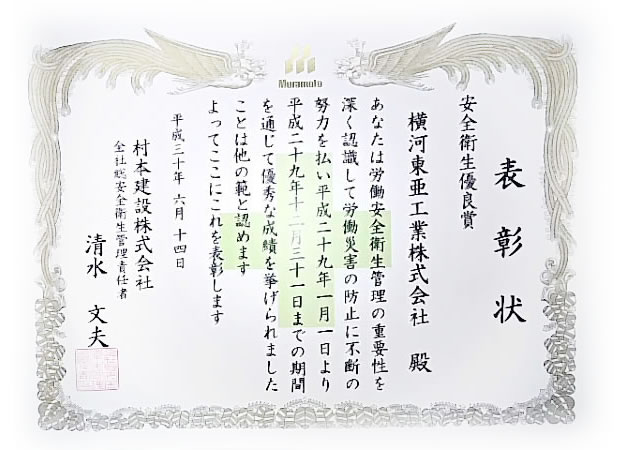 Muramoto
表彰状
安全衛生優良賞
横河東亜工業株式会社 殿
あなたは労働安全衛生管理の重要性を
深く認識して労働災害の防止に不断の
努力を払い平成二十九年一月一日より
平成二十九年十二月三十一日までの期間
を通じて優秀な成績を挙げられました
ことは他の範と認めます
よってここにこれを表彰します
平成三十年 六月 十四日
村本建設株式会社
全社総安全衛生管理責任者
清水 文夫